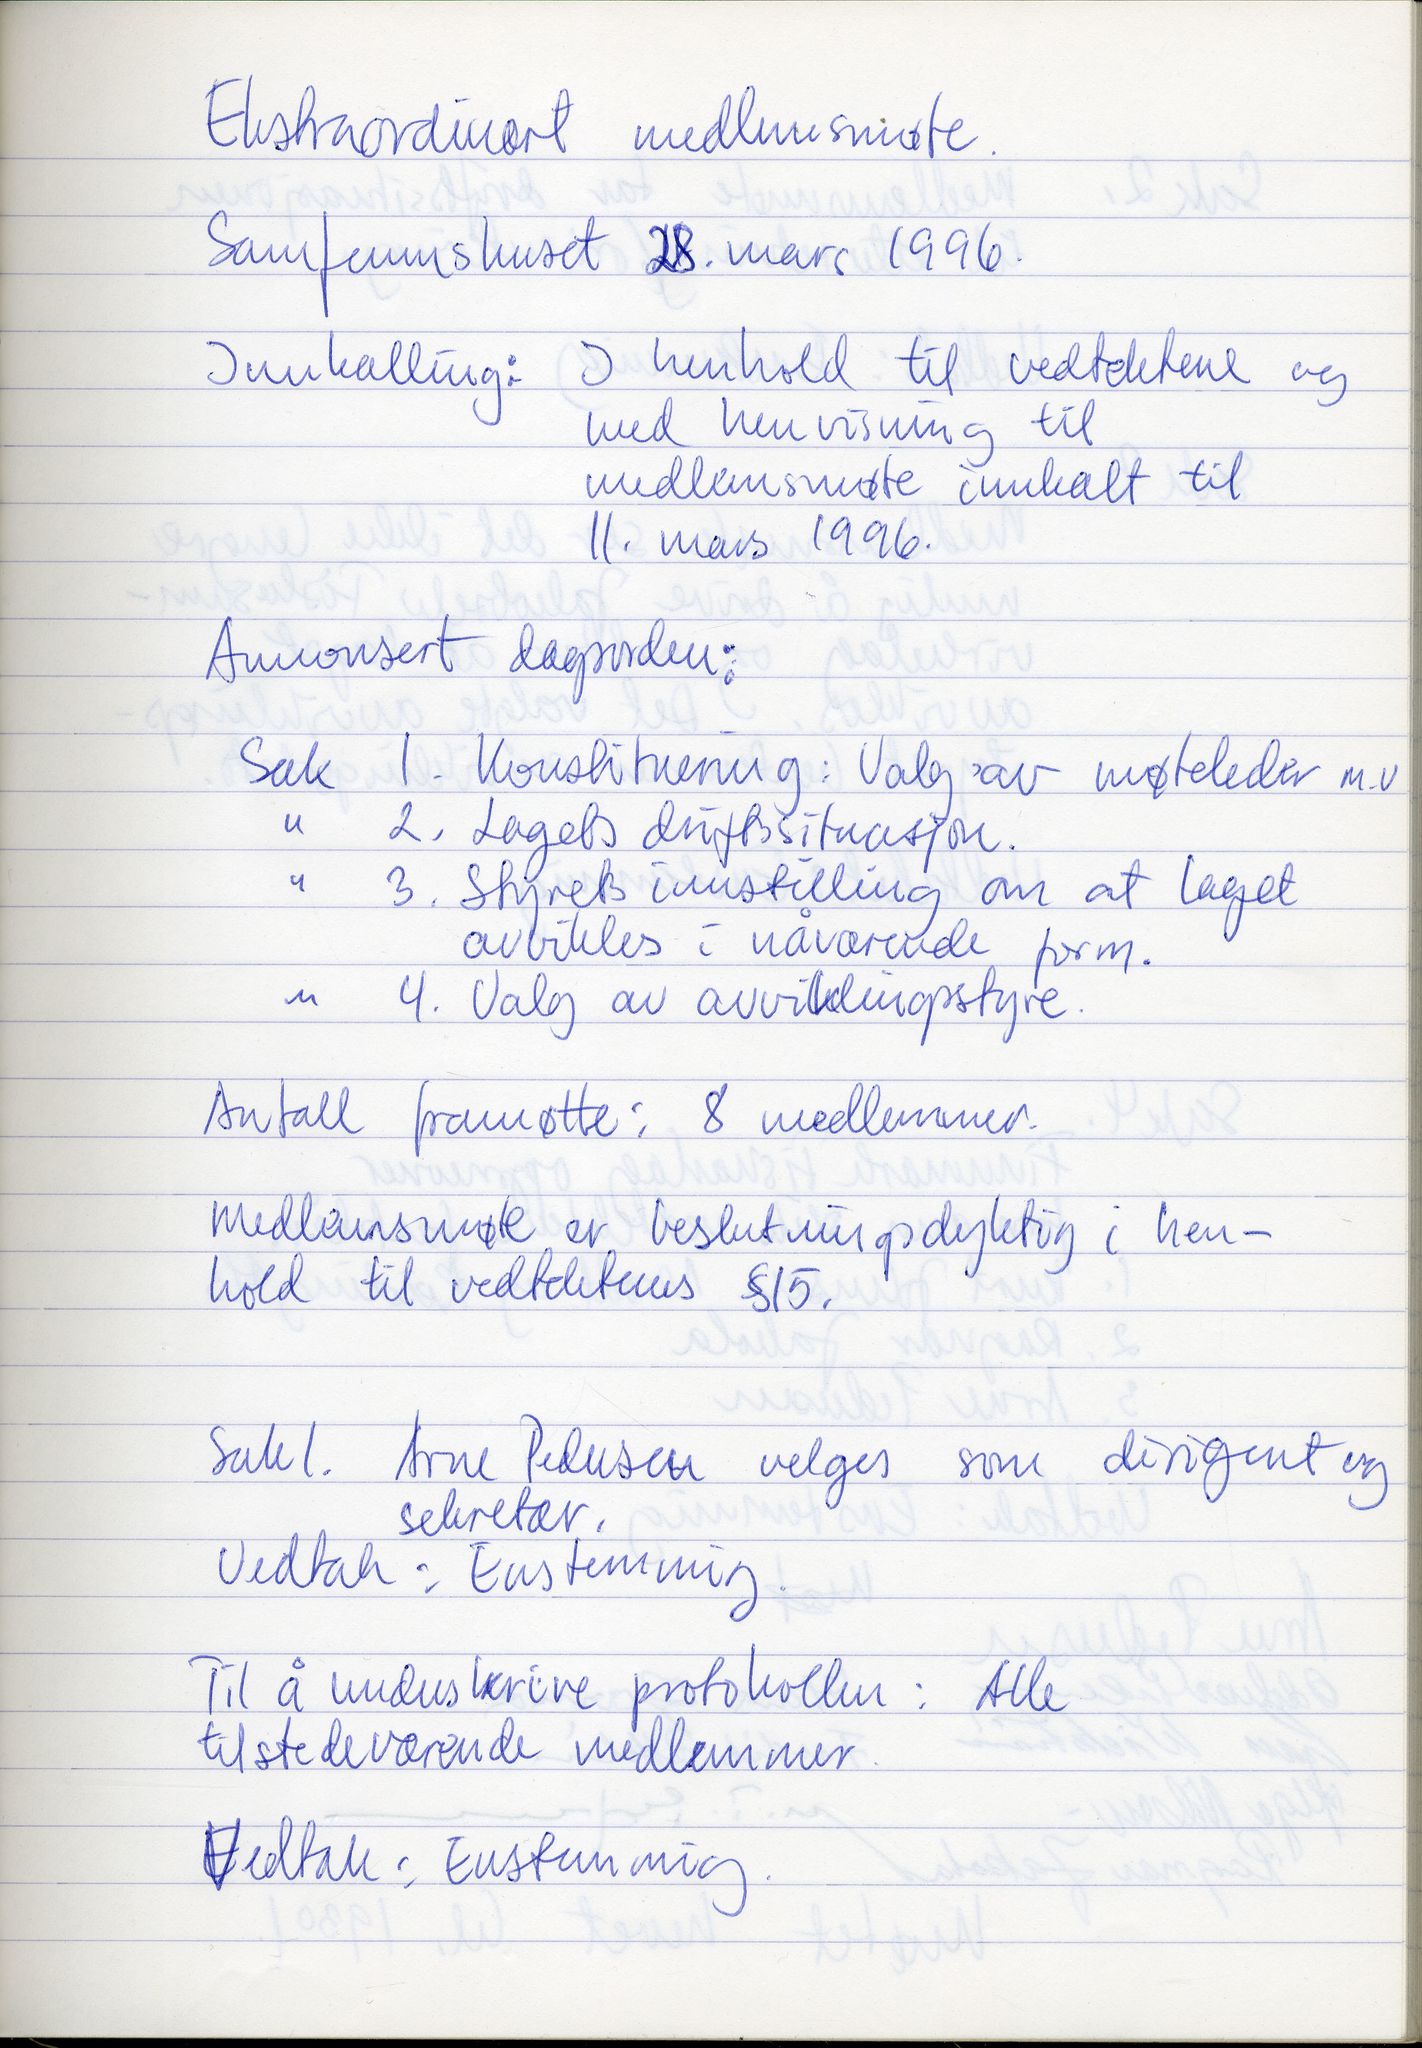 Ekstraordinært medlemsmøte.
Samfunnshuset 28. mars 1996.
Innkalling: I henhold til vedtektene og
med henvisning til
medlemsmøte innkalt til
11. mars 1996.
Annonsert dagsorden:
Sak 1. Konstituering: Valg av møteleder m.v
" 2. Lagets driftssituasjon.
" 3. Styrets innstilling om at laget
avvikles i nåværende form.
" 4. Valg av avviklingsstyre.
Antall framøtte: 8 medlemmer.
Medlemsmøte er beslutningsdyktig i hen-
hold til vedtektenes §15.
Sak 1. Arne Pedersen velges som dirigent og
sekretær.
Vedtak: Enstemmig.
Til å underskrive protokollen: Alle
tilstedeværende medlemmer.
Vedtak: Enstemmig.